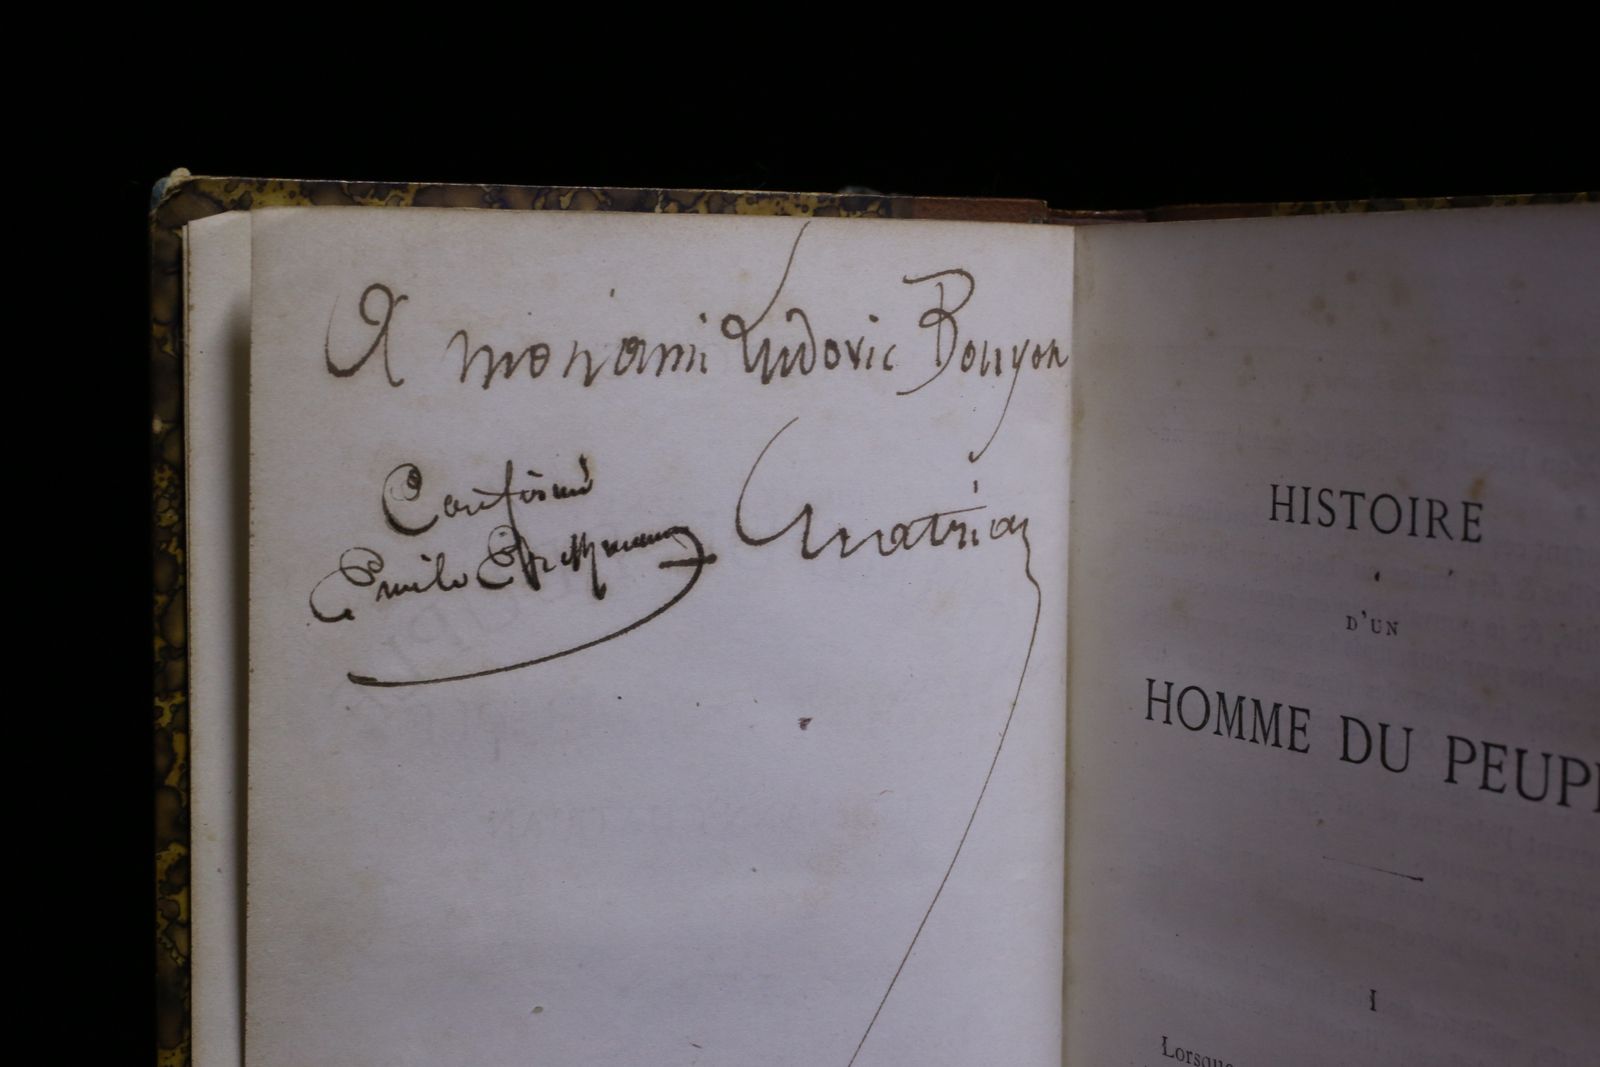 A mon ami Ludovic Bouyon
Confirmé
Emile Erckmann
Chatrian
HISTOIRE
D'UN
HOMME DU PEUPL
I
Lorsque